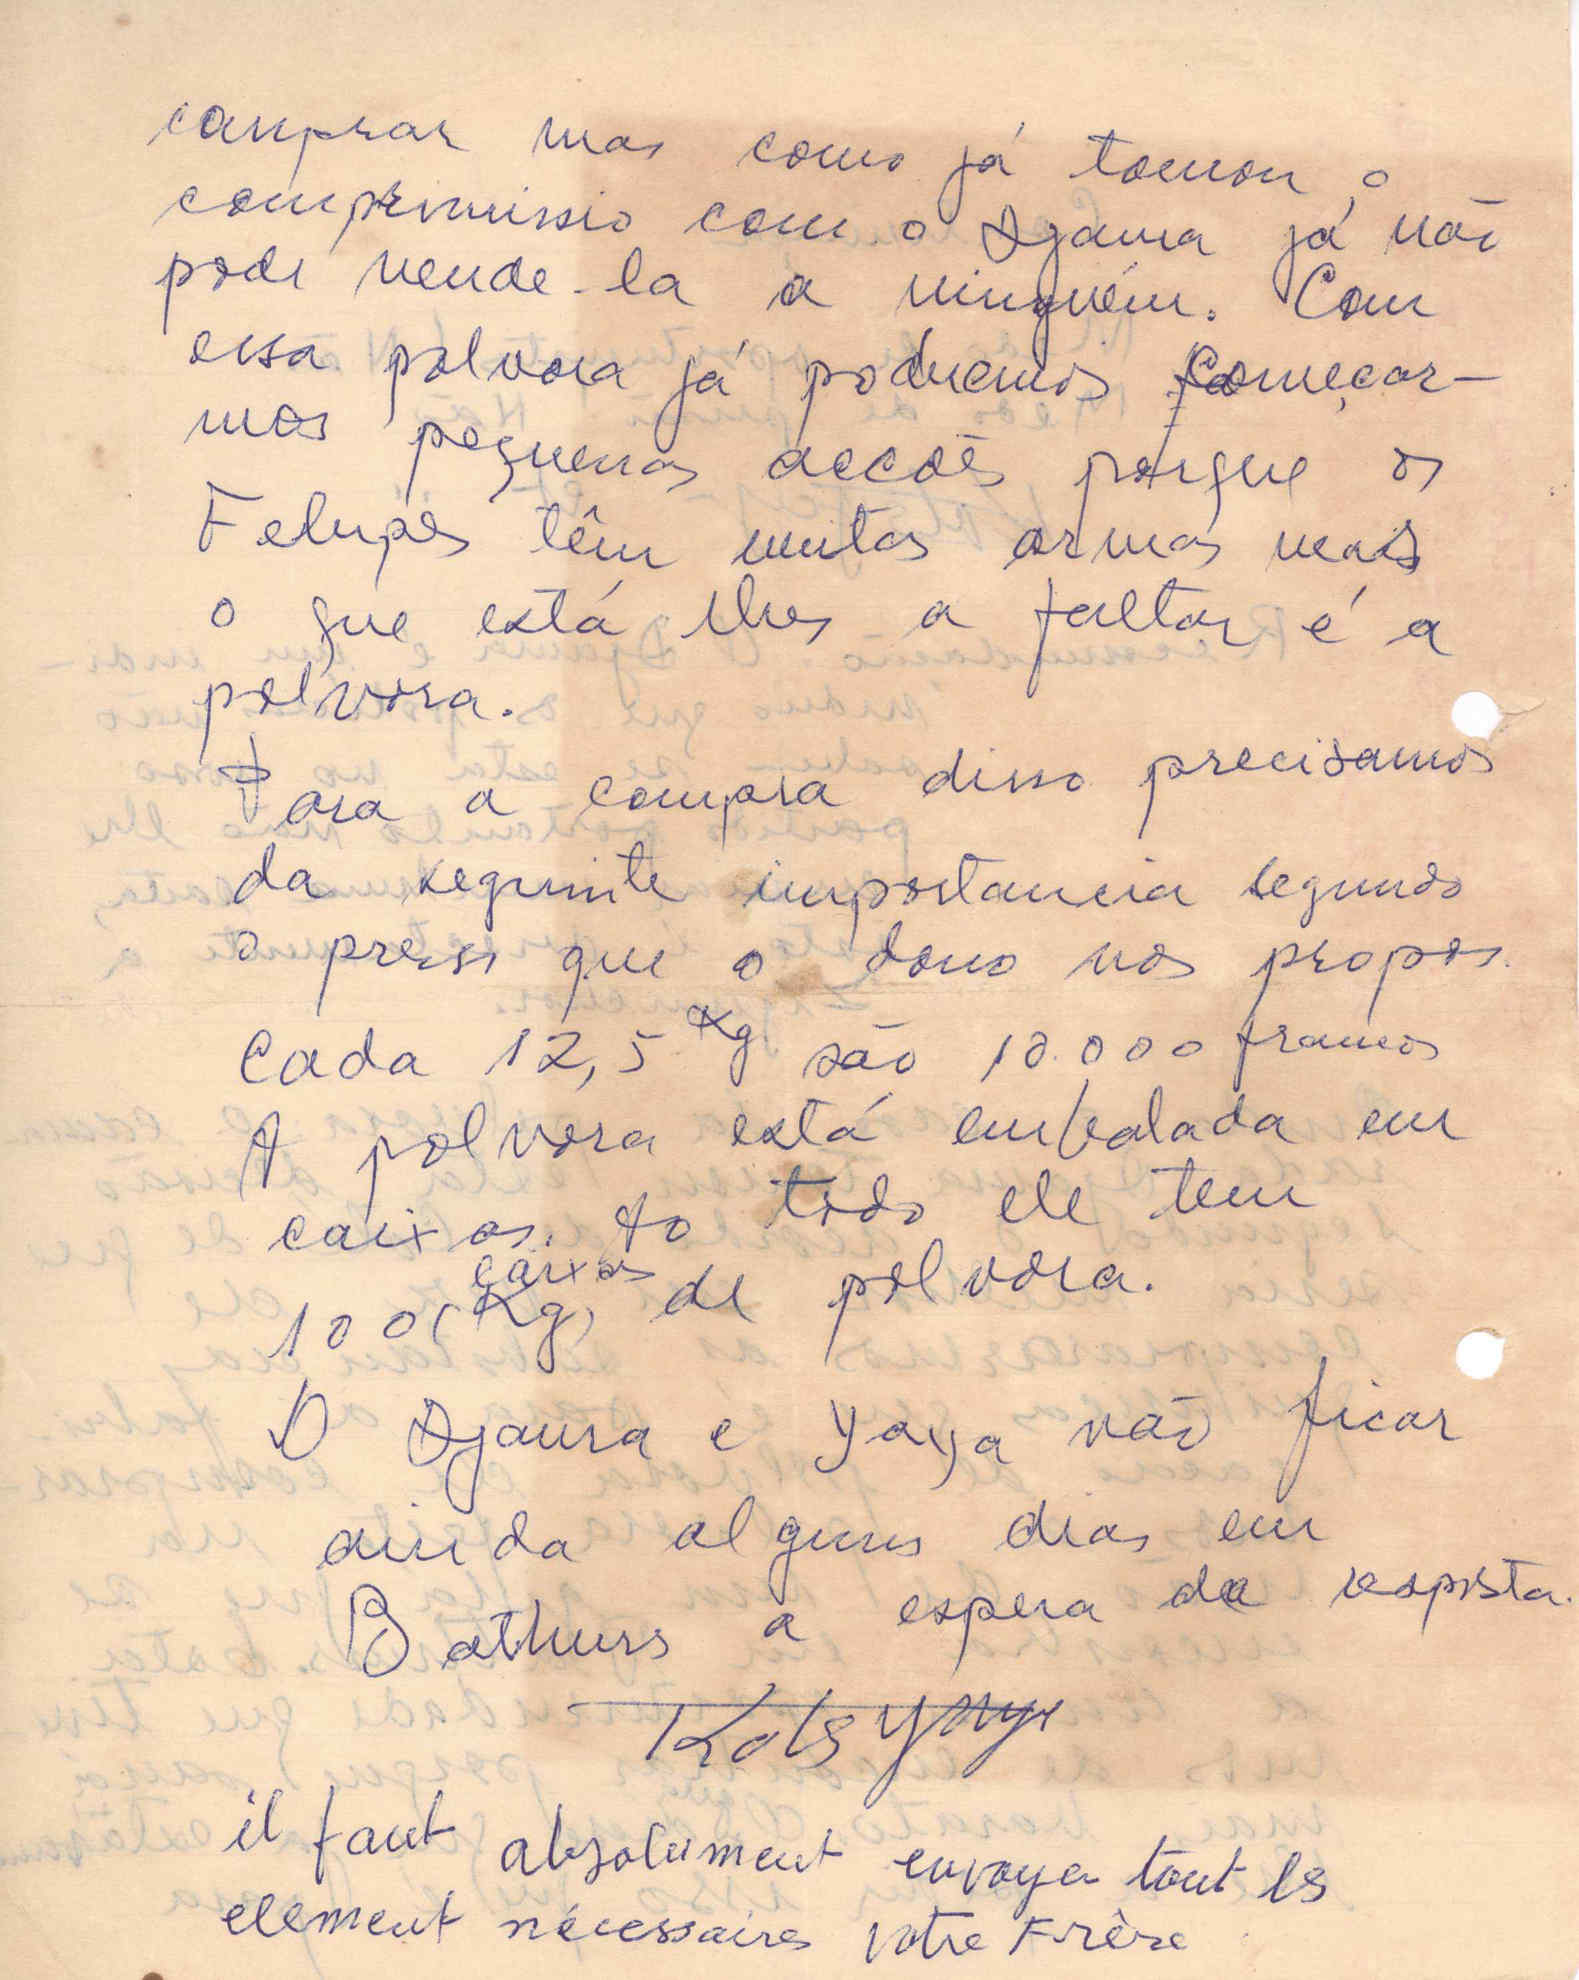 comprar mas como já tomou o
compremissio com o Djaura já não
pode vende-la a ninguém. Com
essa polvora já poduemos começar-
mos pequenas accões porque os
Felupes têm muitas armas mais
o que está lhes a faltar é a
polvora.
Para a compra disso precisamos
da seguinte importancia segundo
o preço que o dono nos propos.
Cada 12,5 Kg são 10.000 francos
A polvora está embalada em
caixas. Ao todo ele tem
caixas
100 (Kg) de polvora.
O Djaura e Yaya vão ficar
ainda alguns dias em
Bathurs a espera da resposta.
il faut absolument envoyer tout les
element nécessaires votre Frère